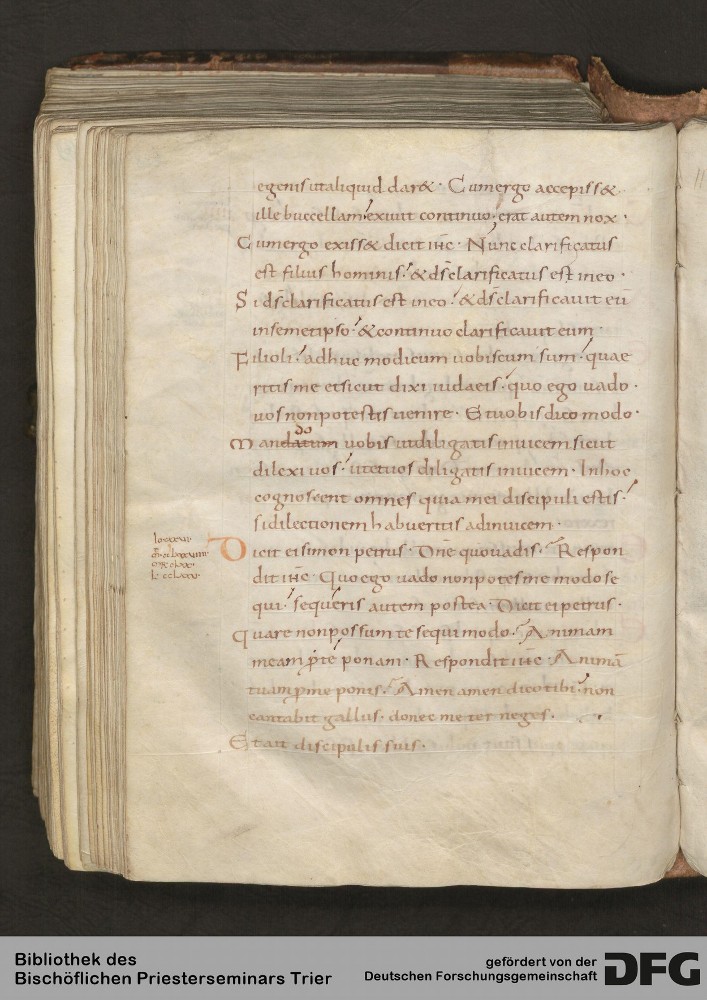 egenis ut aliquid dar&· Cum ergo accepiss&
ille buccellam exivit continuo· erat autem nox·
Cum ergo exiss& dicit ihc· Nunc clarificatus
est filius hominis· & ds clarificatus est in eo·
Si ds clarificatus est in eo· & ds clarificavit eū
in semetipso· & continuo clarificavit eum·
Filioli· adhuc modicum vobiscum sum· quae
ritis me et sicut dixi iudaeis· quo ego vado·
vos non potestis venire· Et vobis dico modo·
do
Mandatum vobis ut diligatis invicem sicut
dilexi vos· ut et vos diligatis invicem· In hoc
cognoscent omnes quia mei discipuli estis·
si dilectionem habueritis ad invicem·
Dicit ei simon petrus· Dne quo vadis· Respon
dit ihc· Quo ego vado non potes me modo se
qui· sequeris autem postea· Dicit ei petrus·
Quare non possum te sequi modo· Animam
meam p te ponam· Respondit ihc· Animā
tuam p me ponis· Amen amen dico tibi· non
cantabit gallus· donec me ter neges·
Et ait discipulis suis·
Bibliothek des
Bischöflichen Priesterseminars Trier
gefördert von der
Deutschen Forschungsgemeinschaft
DFG